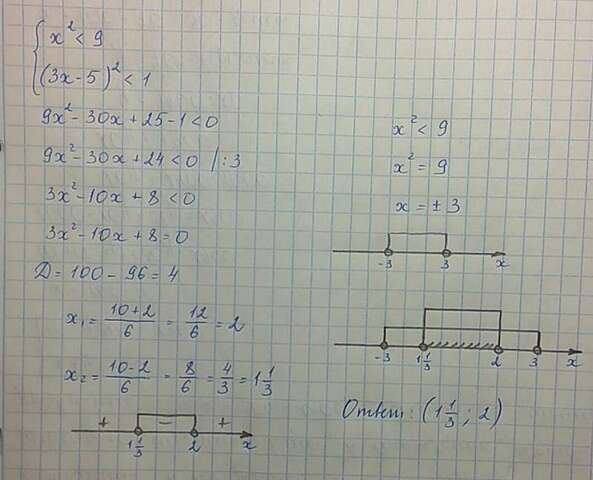 { x² < 9
(3x-5)² < 1
9x² - 30x + 25 - 1 < 0
9x² - 30x + 24 < 0 / : 3
3x² - 10x + 8 < 0
3x² - 10x + 8 = 0
D = 100 - 96 = 4
x₁ = (10+2)/6 = 12/6 = 2
x₂ = (10-2)/6 = 8/6 = 4/3 = 1 1/3
+ − +
1 1/3 2 x
x² < 9
x² = 9
x = ± 3
-3 3 x
-3 1 1/3 2 3 x
Ответ: (1 1/3 ; 2)